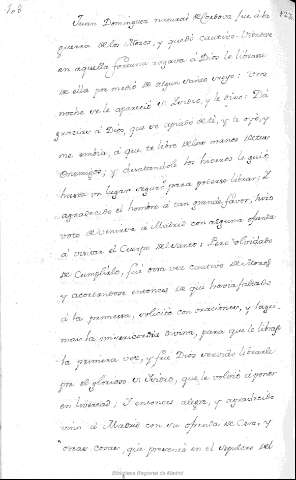 Juan Dominguez natural de Cordova fue á la
guerra de los Moros, y quedó cautivo. Viendose
en aquella fortuna rogava á Dios le librase
de ella por medio de algun Santo viejo: Una
noche se le apareció Sn. Isidro, y le dijo: Dá
gracias á Dios, que se apiade de ti, y te oyó, y
me embia, á que te libre de las manos de tus
Enemigos; y desatandole los hierros le guió
hasta un lugar seguro para poderse librar; I
agradecido el hombre á tan grande favor, hizo
voto de venirse á Madrid con alguna ofrenta
á visitar el Cuerpo del Santo: Pero olvidado
de cumplirlo, fue otra vez cautivo de Moros
y acordandose entonces de que havia faltado
á la promesa, solicitó con oraciones, y lagri
mas la misericordia divina, para que le librase
la primera vez, y fue Dios servido librarle
por el glorioso Sn. Isidro, que le volvió á poner
en livertad; I entonces alegre, y agradecido
vino á Madrid con su ofrenta de Cera, y
otras cosas, que presentó en el sepulcro del
Biblioteca Regional de Madrid